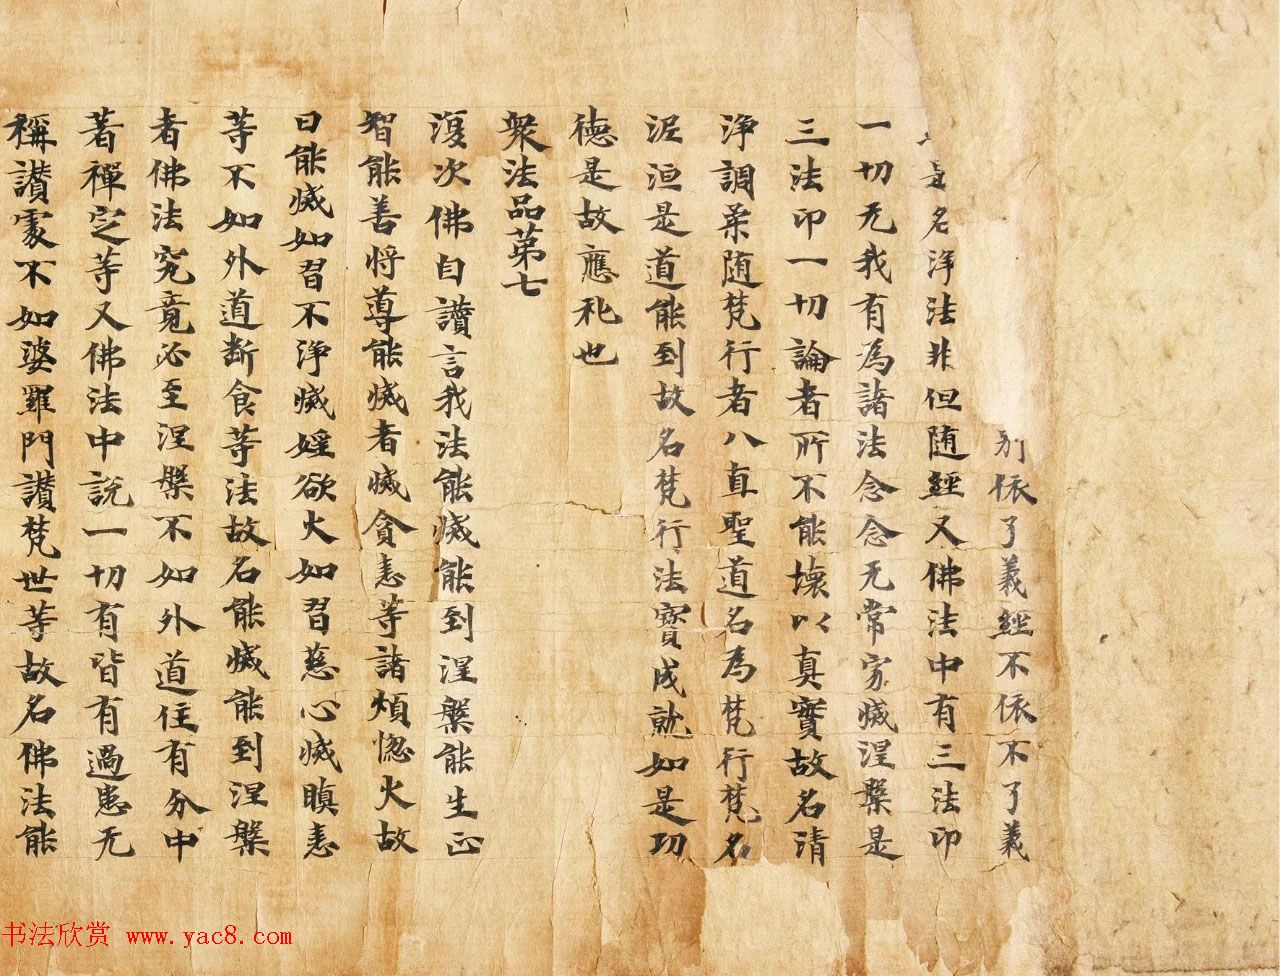 別依了義經不依不了義
是名淨法非但随經又佛法中有三法印
一切无我有為諸法念念无常寂滅涅槃是
三法印一切論者所不能壞以真實故名清
淨調柔随梵行者八直聖道名為梵行梵名
泥洹是道能到故名梵行法寶成就如是功
德是故應礼也
衆法品第七
復次佛自讚言我法能滅能到涅槃能生正
智能善将導能滅者滅貪恚等諸煩惚火故
曰能滅如習不淨滅婬欲火如習慈心滅瞋恚
等不如外道断食等法故名能滅能到涅槃
者佛法究竟必至涅槃不如外道住有分中
著禪定等又佛法中說一切有皆有過患无
稱讚處不如婆羅門讚梵世等故名佛法能
书法欣赏 www.yac8.com